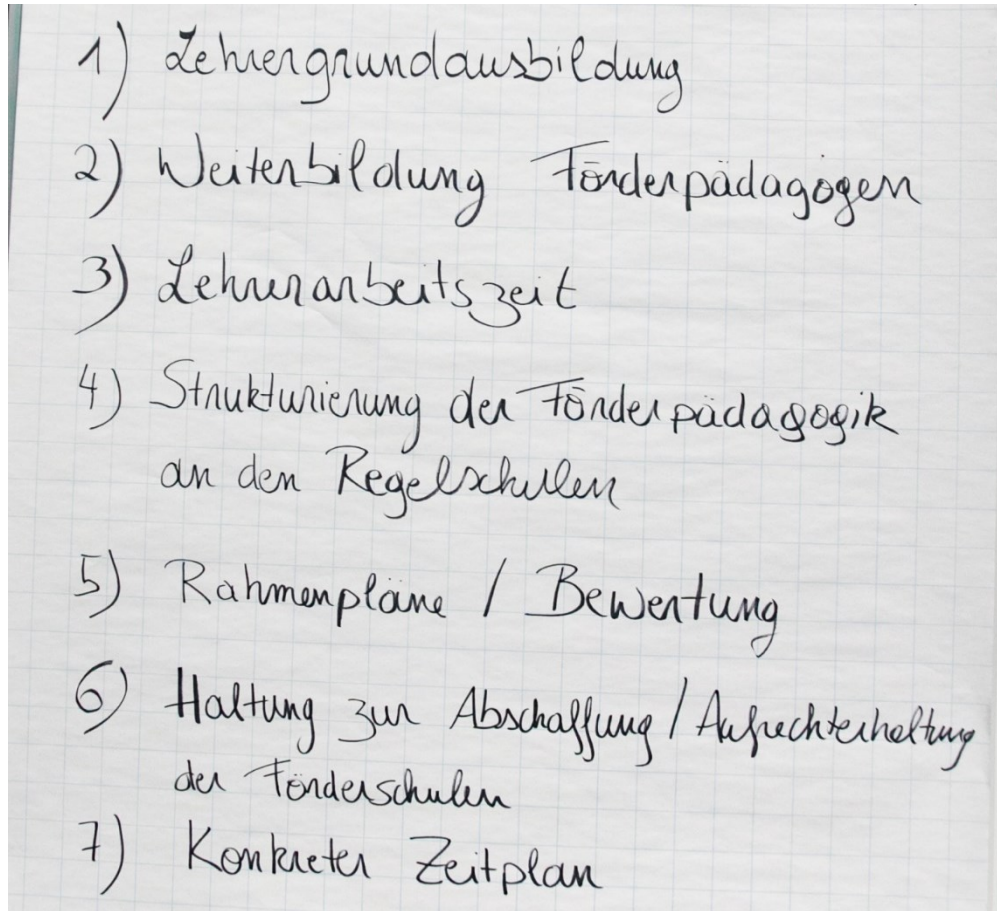 1) Lehrergrundausbildung
2) Weiterbildung Förderpädagogen
3) Lehrerarbeitszeit
4) Strukturierung der Förderpädagogik
an den Regelschulen
5) Rahmenpläne / Bewertung
6) Haltung zur Abschaffung / Aufrechterhaltung
der Förderschulen
7) Konkreter Zeitplan